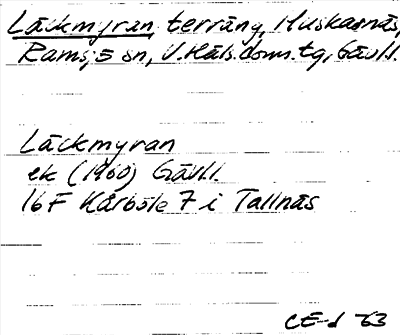 Läckmyran, terräng, Huskasnäs,
Ramsjö sn, V.Häls.doms.tg, Gävl.l.
Läckmyran
ek (1960) Gävl.l.
16F Kårböle 7 i Tallnäs
CE-d -63